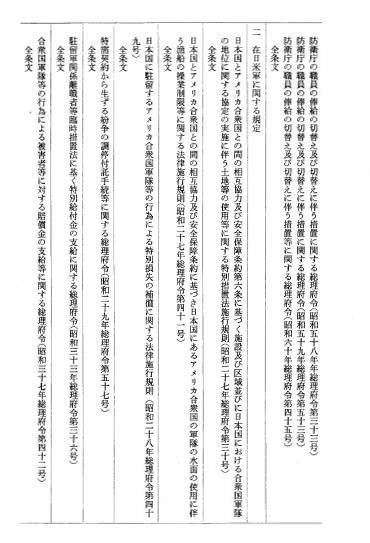 防衛庁の職員の俸給の切替え及び切替えに伴う措置に関する総理府令(昭和五十八年年総理府令第三十三号)
防衛庁の職員の俸給の切替え及び切替えに伴う措置に関する総理府令(昭和五十九年総理府令第五十三号)
防衛庁の職員の俸給の切替え及び切替えに伴う措置等に関する総理府令(昭和六十年総理府令第四十五号)
全条文
二 在日米軍に関する規定
日本国とアメリカ合衆国との間の相互協力及び安全保障条約第六条に基づく施設及び区域並びに日本国における合衆国軍隊
の地位に関する協定の実施に伴う土地等の使用等に関する特別措置法施行規則(昭和二十七年総理府令第三十号)
全条文
日本国とアメリカ合衆国との間の相互協力及び安全保障条約に基づき日本国にあるアメリカ合衆国の軍隊の水面の使用に伴
う漁船の操業制限等に関する法律施行規則(昭和二十七年総理府令第四十一号)
全条文
日本国に駐留するアメリカ合衆国軍隊等の行為による特別損失の補償に関する法律施行規則(昭和二十八年総理府令第四十
九号)
全条文
特需契約から生ずる紛争の調停付託手続等に関する総理府令(昭和二十九年総理府令第五十七号)
全条文
駐留軍関係離職者等臨時措置法に基く特別給付金の支給に関する総理府令(昭和三十三年総理府令第三十六号)
全条文
合衆国軍隊等の行為による被害者等に対する賠償金の支給等に関する総理府令(昭和三十七年総理府令第四十二号)
全条文